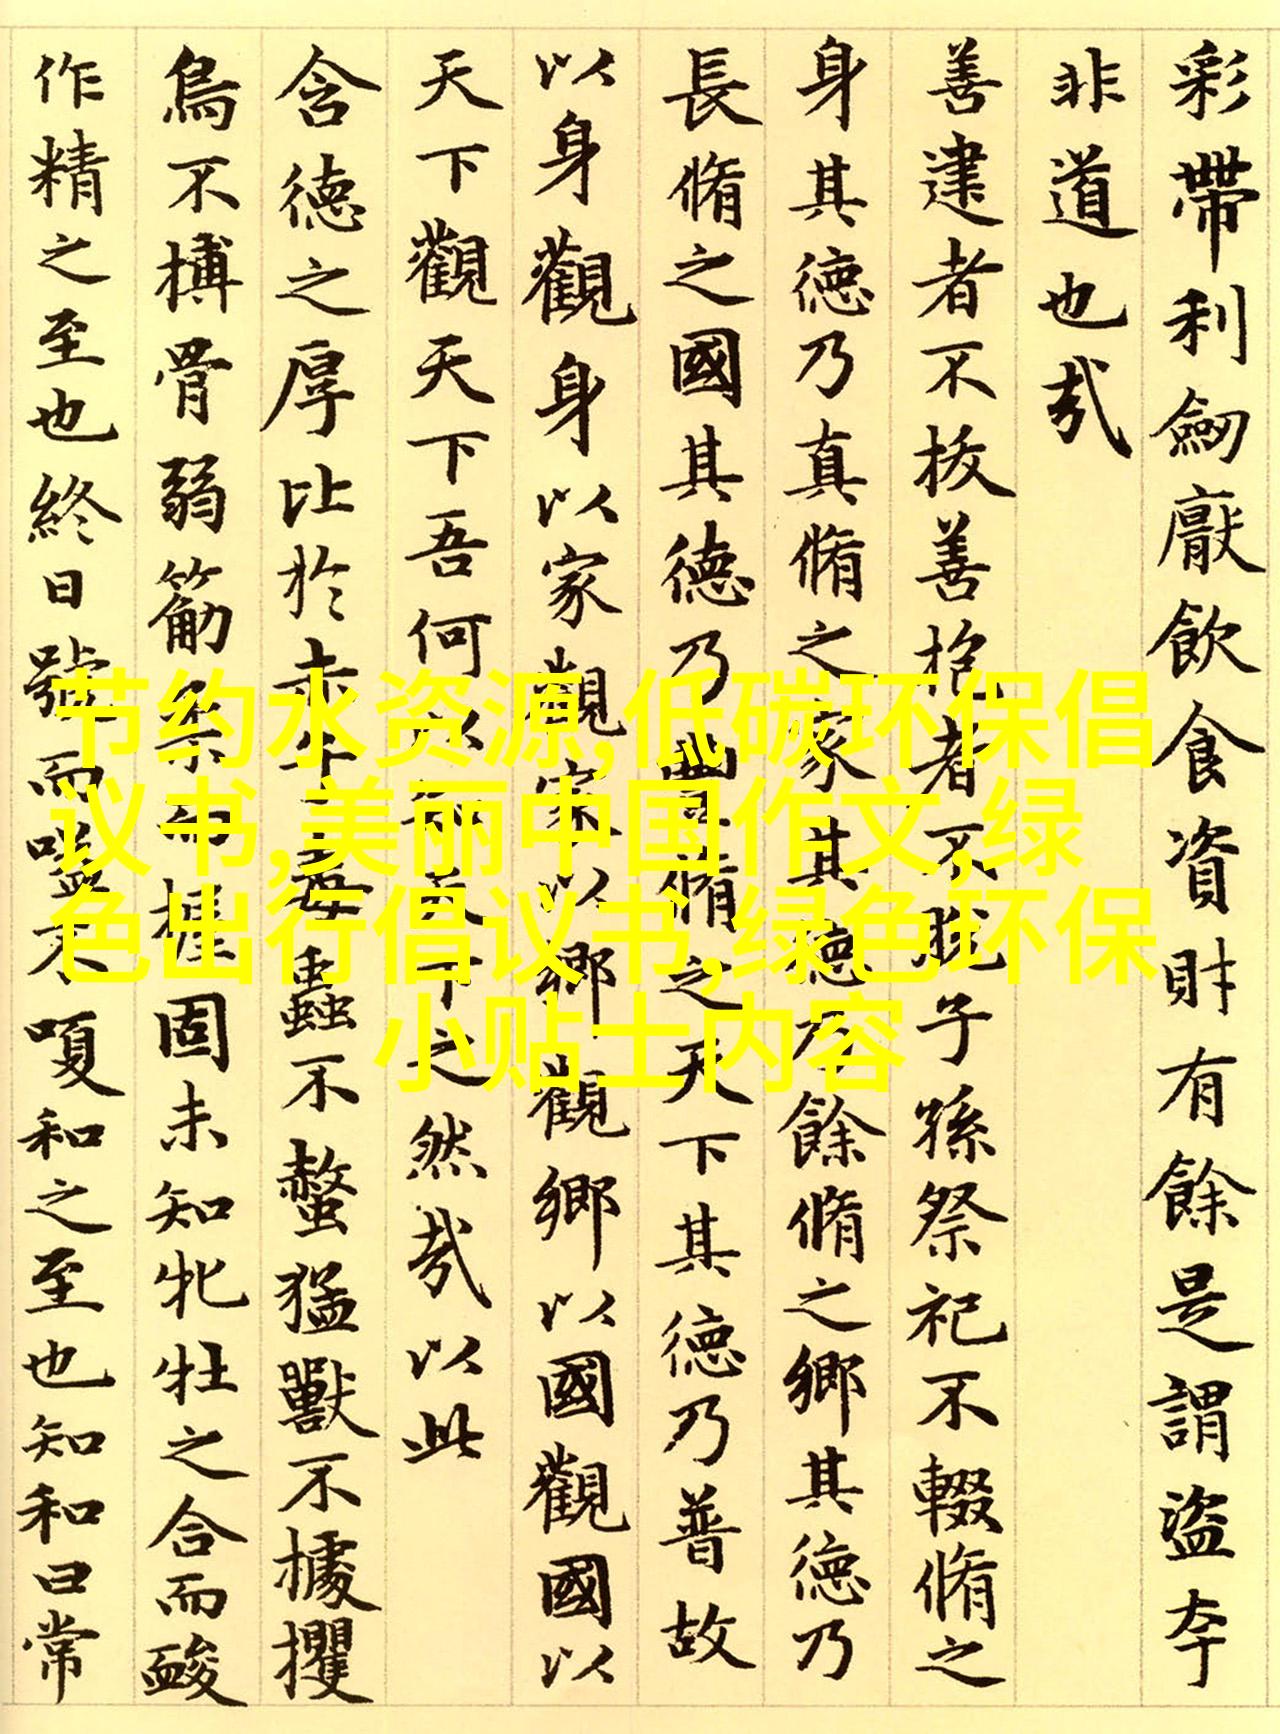 彩帶利劒厭飲食資財有餘是謂盜夸
非道也哉
善建者不拔善抱者不脫子孫祭祀不輟脩之
身其德乃真脩之家其德乃餘脩之鄉其德乃
長脩之國其德乃豐脩之天下其德乃普故
以身觀身以家觀家以鄉觀鄉以國觀國以
天下觀天下吾何以知天下之然哉以此
含德之厚比於赤子毒蟲不螫猛獸不據攫
鳥不搏骨弱筋柔而握固未知牝牡之合而䘒
作精之至也終日號而嗌不嗄和之至也知和曰常
节约水资源,低碳环保倡
议书,美丽中国作文,绿
色出行倡议书,绿色环保
小贴士内容